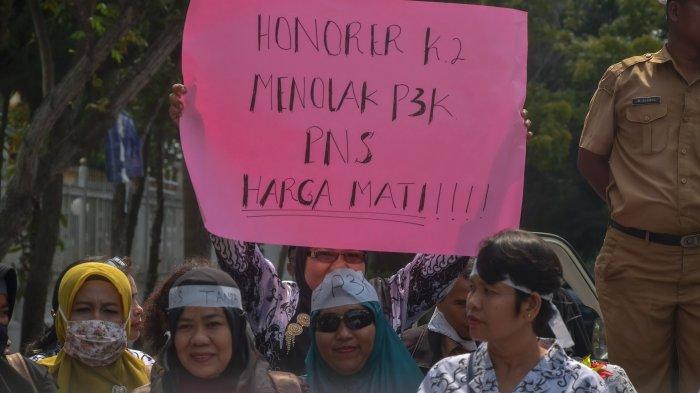 HONORER K.2
MENOLAK P3K
PNS
HARGA MATI!!!!
P3K